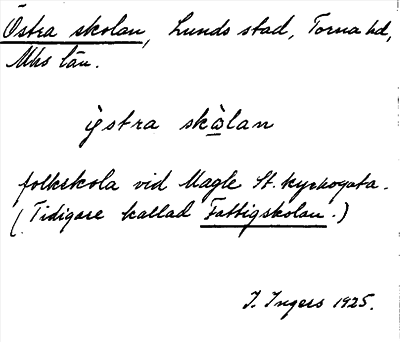 Östra skolan, Lunds stad, Torna hd,
Mhs län.
ÿstra skòlan
folkskola vid Magle St. kyrkogata.
(Tidigare kallad Fattigskolan.)
I. Ingers 1925.